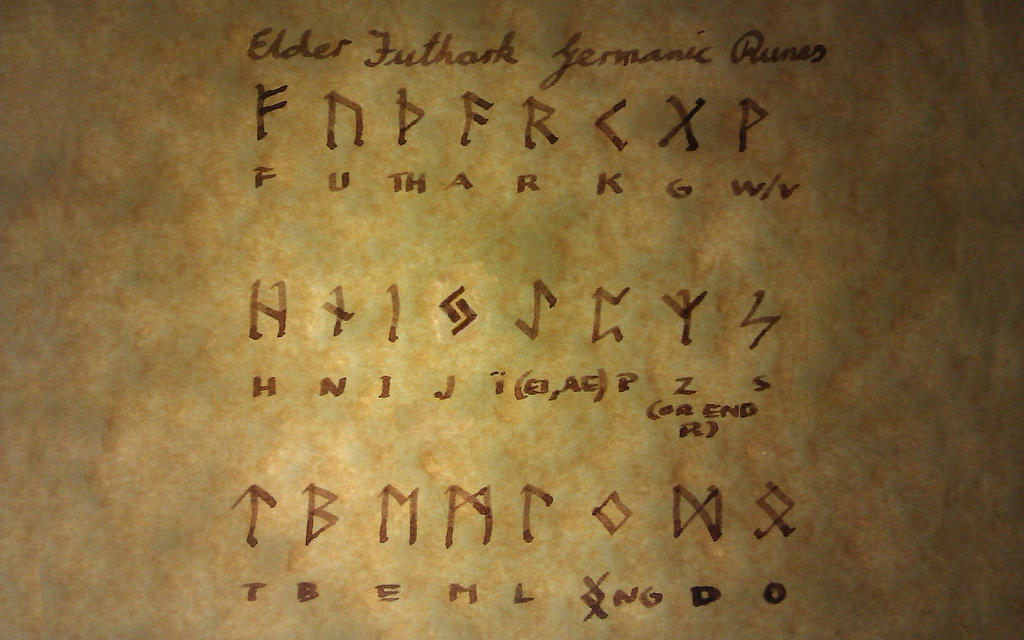 Elder Futhark Germanic Runes
ᚠ ᚢ ᚦ ᚨ ᚱ ᚲ ᚷ ᚹ
F U TH A R K G W/V
ᚺ ᚾ ᛁ ᛃ ᛇ ᛈ ᛉ ᛊ
H N I J Ï (EI, AE) P Z S
(OR END
R)
ᛏ ᛒ ᛖ ᛗ ᛚ ᛜ ᛞ ᛟ
T B E M L NG D O